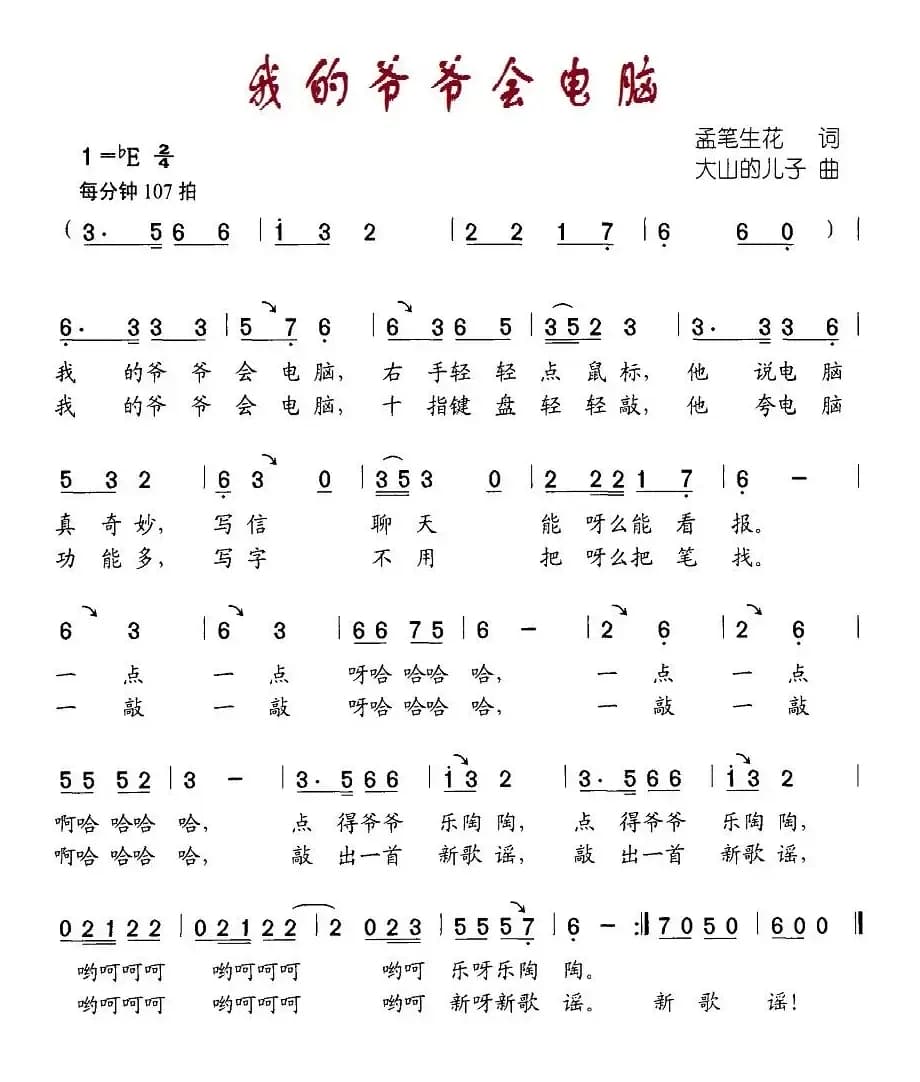 我的爷爷会电脑
孟笔生花 词
1=♭E 2/4
大山的儿子 曲
每分钟 107 拍
( 3· 5 6 6 6 | i 3 2 | 2 2 1 7 | 6 6 0 ) |
6· 3 3 3 | 5 7 6 | 6 3 6 5 | 3 5 2 3 | 3· 3 3 6 |
我 的爷 爷 会 电 脑, 右 手轻 轻 点 鼠 标, 他 说电 脑
我 的爷 爷 会 电 脑, 十 指键 盘 轻 轻 敲, 他 夸电 脑
5 3 2 | 6 3 0 | 3 5 3 0 | 2 2 2 1 7 | 6 – |
真 奇 妙, 写 信 聊 天 能 呀么能 看 报。
功 能 多, 写 字 不 用 把 呀么把 笔 找。
6 3 | 6 3 | 6 6 7 5 | 6 – | 2 6 | 2 6 |
一 点 一 点 呀哈 哈哈 哈, 一 点 一 点
一 敲 一 敲 呀哈 哈哈 哈, 一 敲 一 敲
5 5 5 2 | 3 – | 3· 5 6 6 | i 3 2 | 3· 5 6 6 | i 3 2 |
啊哈 哈哈 哈, 点 得爷爷 乐陶 陶, 点 得爷爷 乐陶 陶,
啊哈 哈哈 哈, 敲 出一首 新歌 谣, 敲 出一首 新歌 谣,
0 2 1 2 2 | 0 2 1 2 2 | 2 0 2 3 | 5 5 5 7 | 6 – :‖ 7 0 5 0 | 6 0 0 ‖
哟呵呵呵 哟呵呵呵 哟呵 乐呀乐陶 陶。
哟呵呵呵 哟呵呵呵 哟呵 新呀新歌 谣。 新 歌 谣!